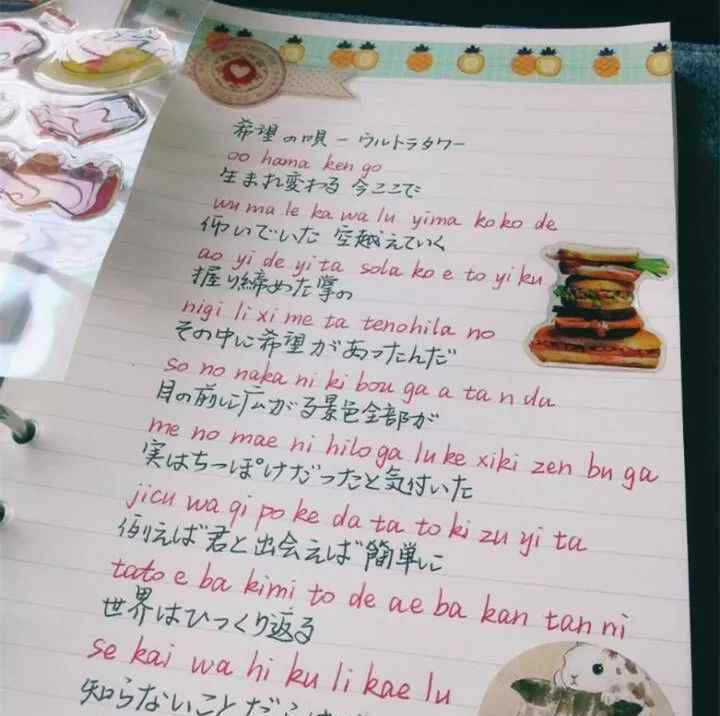 希望の唄 - ウルトラタワー
oo hama ken go
生まれ変わる 今ここで
wu ma le ka wa lu yima ko ko de
仰いでいた 空越えていく
ao yi de yi ta sola ko e to yi ku
握り締めた掌の
nigi li xi me ta tenohila no
その中に希望があったんだ
so no naka ni ki bou ga a ta n da
目の前に広がる景色全部が
me no mae ni hilo ga lu ke xiki zen bu ga
実はちっぽけだったと気付いた
jicu wa qi po ke da ta to ki zu yi ta
例えば君と出会えば簡単に
tato e ba kimi to de ae ba kan tan ni
世界はひっくり返る
se kai wa hi ku li kae lu
知らないことだらけ